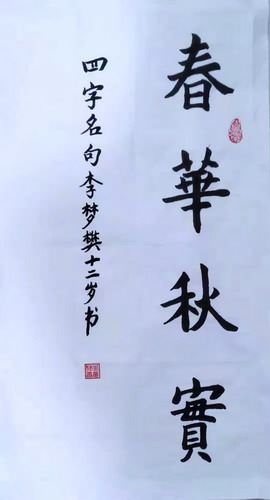 春華秋實
四字名句李梦樊十二岁书